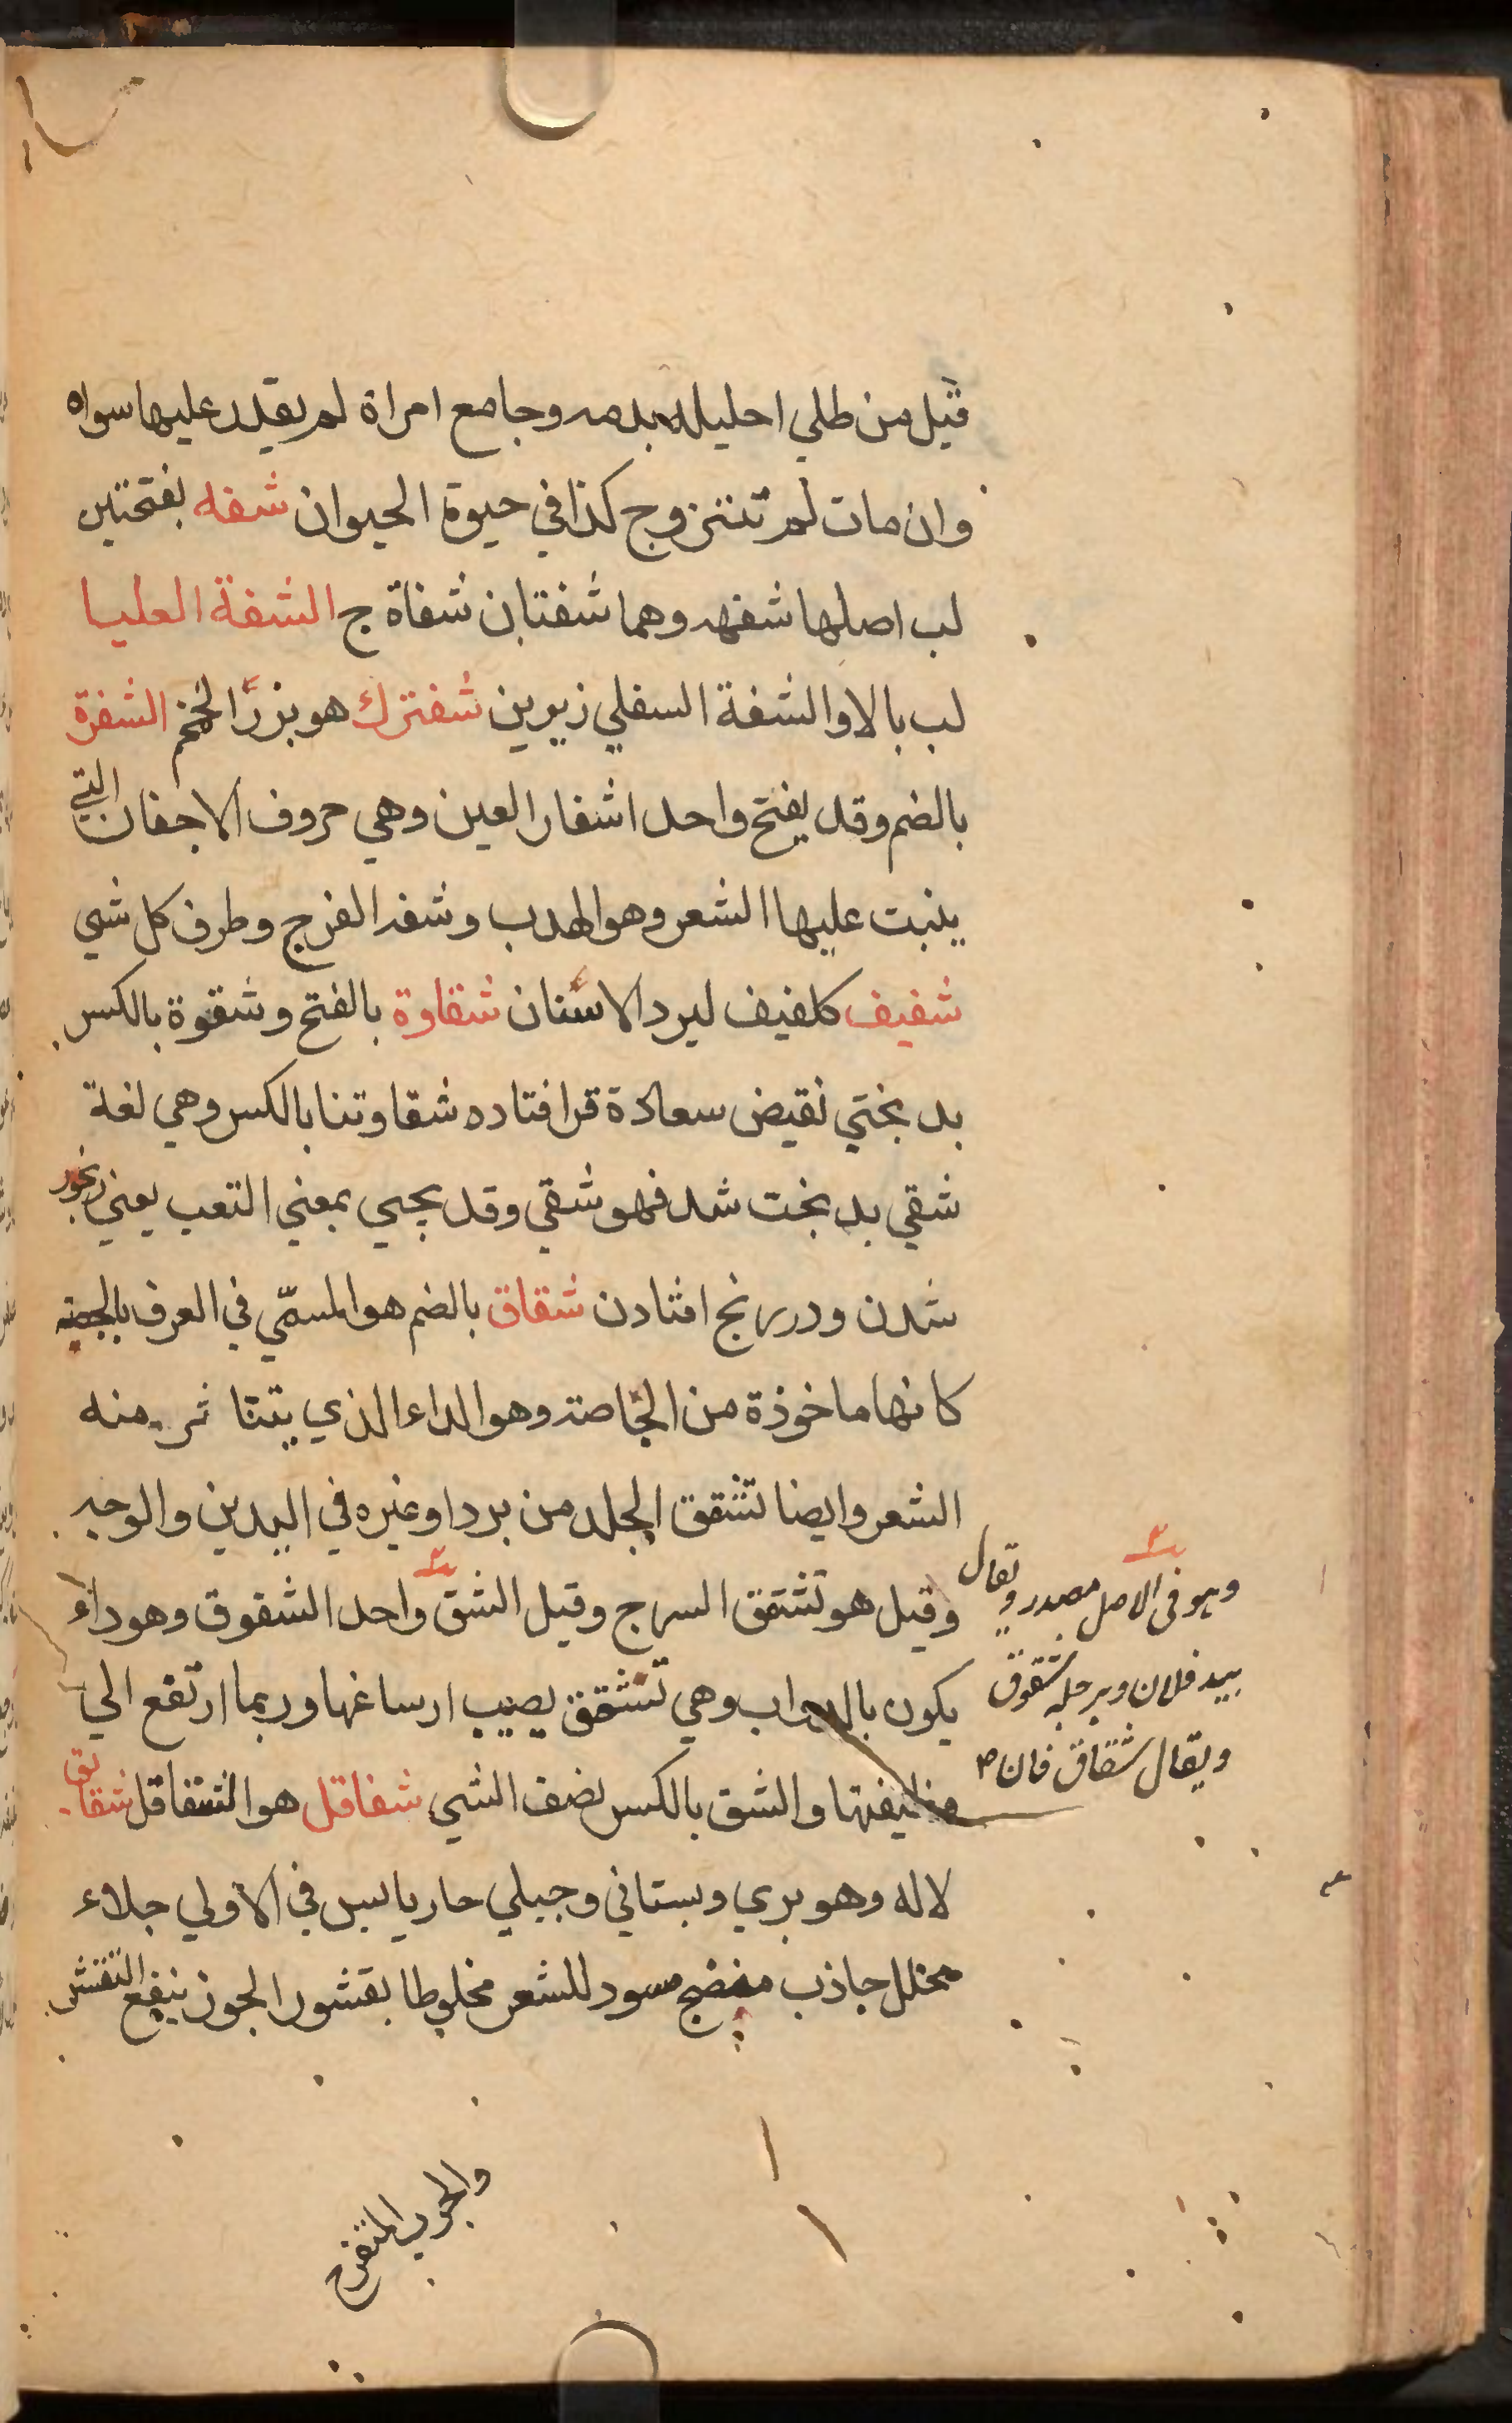 قيل من طلي احليله بدمه وجامع امراة لم يقدر عليها سواه
وان مات لم تتزوج كذا في حيوة الحيوان شفه بفتحتين
لب اصلها شفهه وهما شفتان شفاة ج الشفة العليا
لب بالا والشفة السفلي زيرين شفترك هو بزر الخمخم الشفرة
بالضم وقد يفتح واحد اشفار العين وهي حروف الاجفان التي
ينبت عليها الشعر وهو الهدب وشفر الفرج وطرف كل شي
شفيف كلفيف لبرد الاسنان شقاوة بالفتح وشقوة بالكسر
بد بختي نقيض سعادة قرا فتاده شقاوتنا بالكسر وهي لغة
شقي بد بخت شد فهو شقي وقد يجيي بمعني التعب يعني رنجور
شدن ودر رنج افتادن شقاق بالضم هو المسمّي في العرف
كانها ماخوذة من الحاصة وهو الداء الذي يتناثر منه
الشعر وايضا تشقق الجلد من برد او غيره في اليدين والوجه
وقيل هو تشقق السرج وقيل الشق واحد الشقوق وهو داء
يكون بالدواب وهي تشقق يصيب ارساغها وربما ارتفع الي
وظيفتها والشق بالكسر نصف الشي شقاقل هو الشقاقل شقايق
لاله وهو بري وبستاني وجبلي حار يابس في الاولي جلاء
محلل جاذب منضج مسود للشعر مخلوطا بقشور الجوز ينفع التقشر
والجرب المتقرح
وهو في الاصل مصدر ويقال
بيد فلان وبرجله شقوق
ويقال شقاق فان